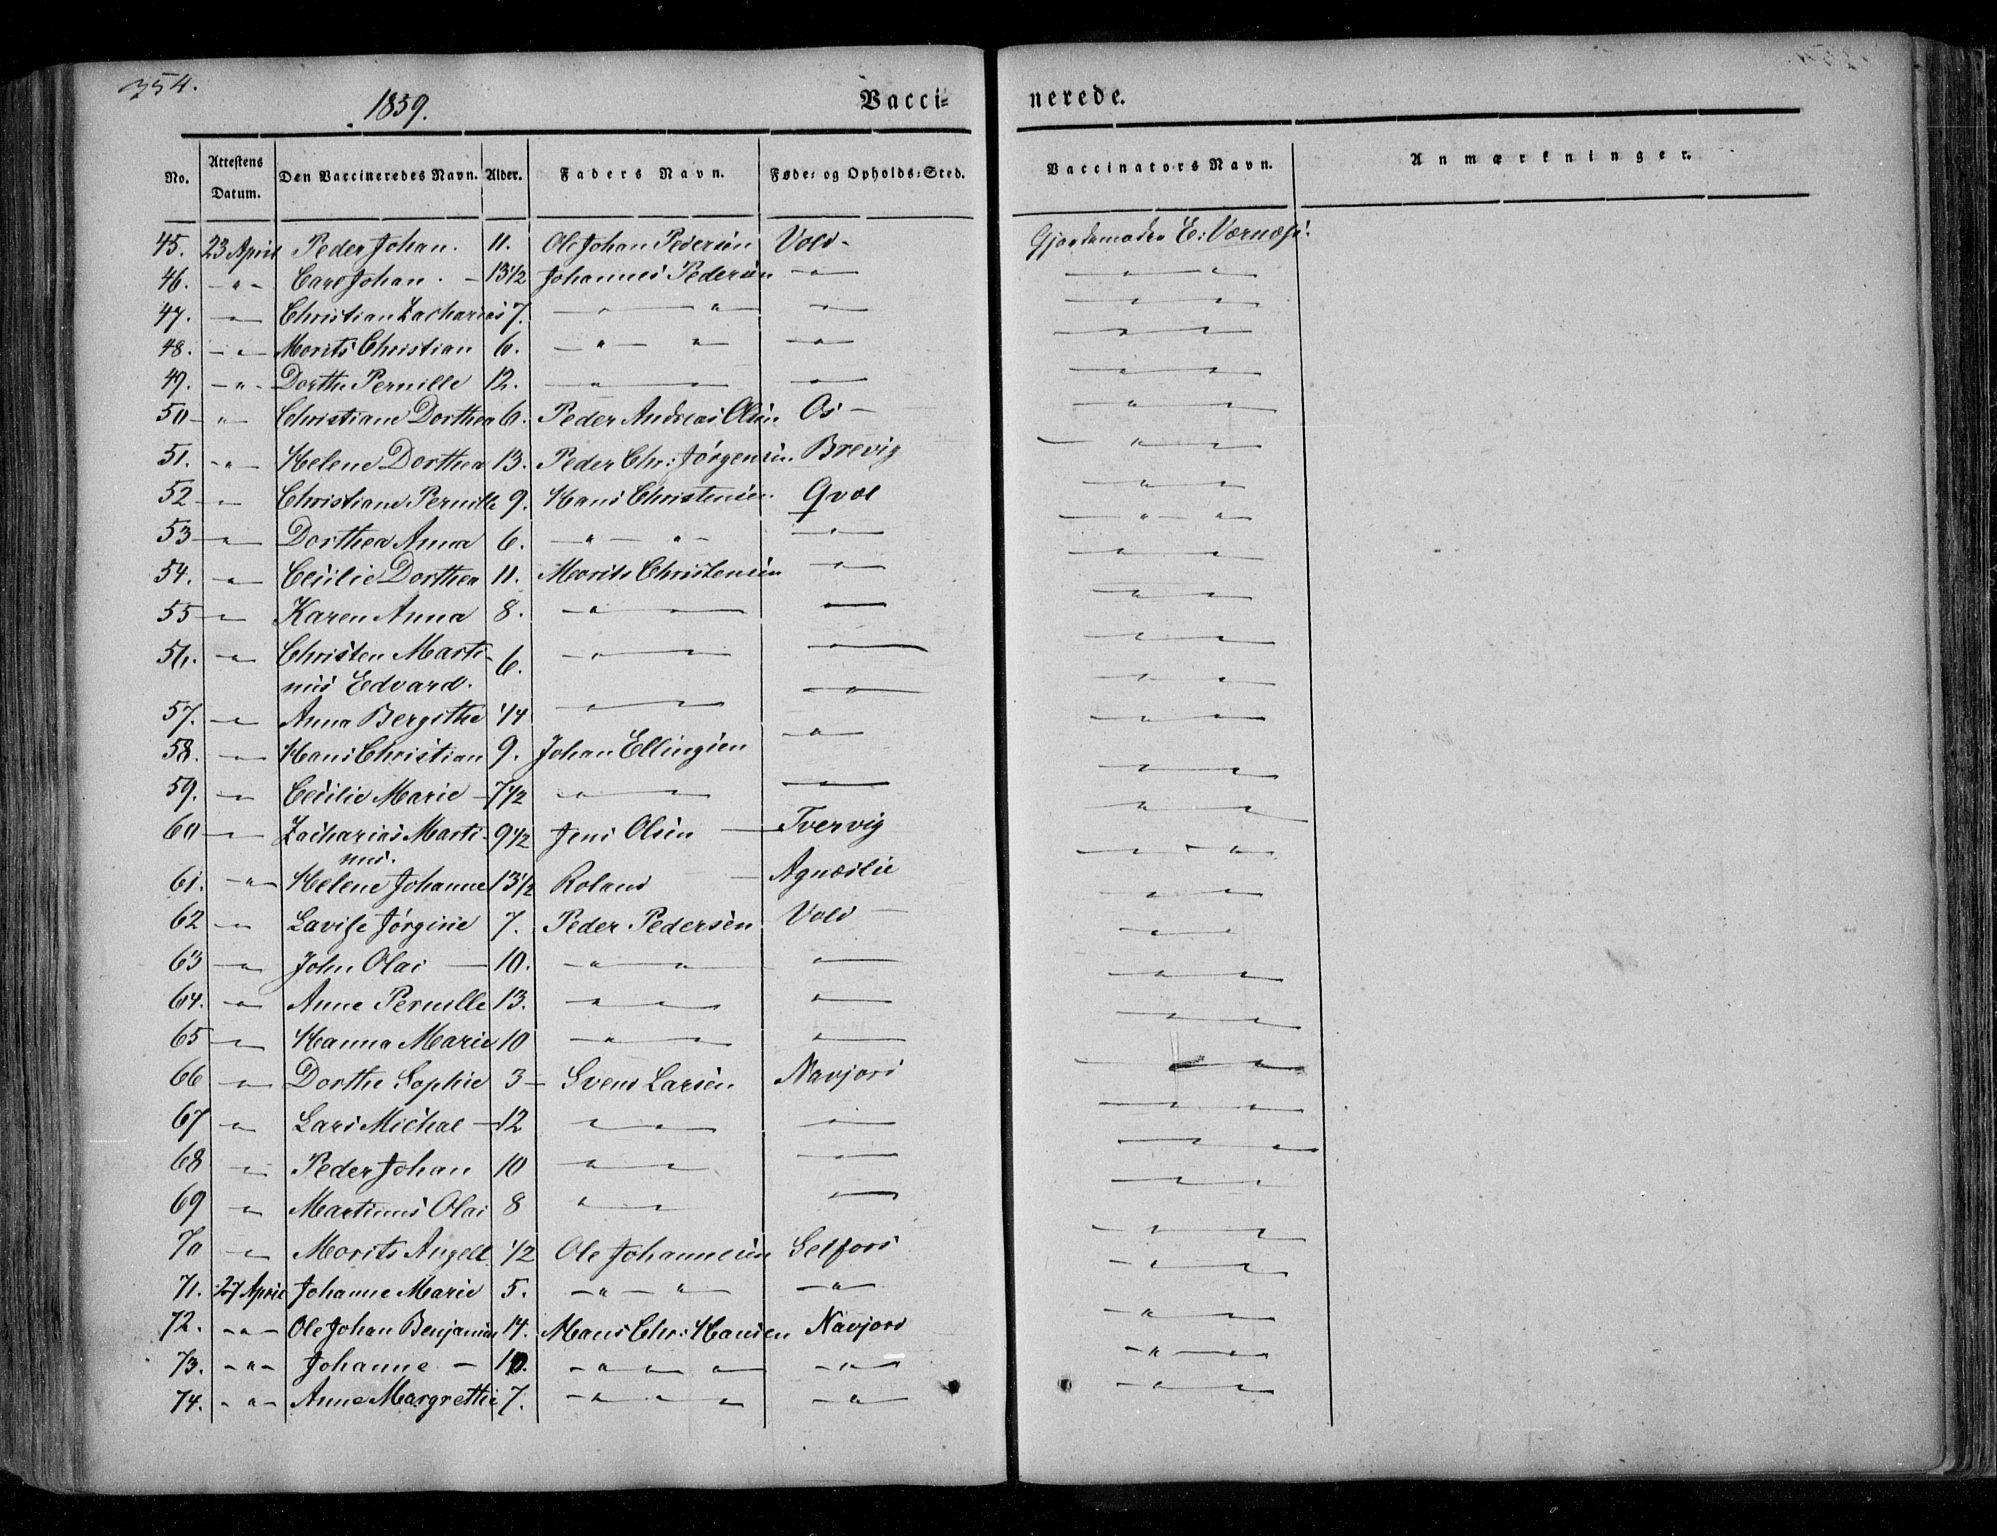 354.
1859.
Vacci- nerede.
No. Attestens Datum. Den Vaccineredes Navn. Alder. Faders Navn. Føde- og Opholds-Sted. Vaccinators Navn. Anmærkninger.
45. 23 April Peder Johan. 11. Ole Johan Pedersen Vold - Gjordemoder E: Værnæs:
46. - " - Carl Johan. - 13 1/2 Johannes Pedersen - " - - " - " -
47. - " - Christian Zacharias 7. - " - " - - " - - " - " -
48. - " - Morits Christian 6. - " - " - - " - - " - " -
49. - " - Dorthe Pernille 12. - " - " - - " - - " - " -
50 - " - Christiane Dorthea 6. Peder Andreas Olsen Os - - " - " -
51. - " - Helene Dorthea 13. Peder Chr: Jørgensen. Brevig - " - " -
52 - " - Christiane Pernille 9. Hans Christensen. Qval - " - " -
53 - " - Dorthea Anna 6. - " - " - - " - - " - " -
54. - " - Cecilie Dorthea 11. Morits Christensen - " - - " - " -
55 - " - Karen Anna 8. - " - " - - " - - " - " -
56. - " - Christen Marti- 6. - " - " - - " - - " - " -
nus Edvard.
57. - " - Anna Bergithe 1/4 - " - " - - " - - " - " -
58. - " - Hans Christian 9. Johan Ellingsen - " - - " - " -
59. - " - Cecilie Marie - 7 1/2 - " - " - - " - - " - " -
60 - " - Zacharias Marti- 9 1/2 Jens Olsen - Tvervig - " - " -
nus.
61. - " - Helene Johanne 13 1/2 Roland - Agnæslie - " - " -
62 - " - Lovise Jørgine 7. Peder Pedersen Vold - - " - " -
63 - " - John Olai - 10. - " - " - - " - - " - " -
64. - " - Anne Pernille 13. - " - " - - " - - " - " -
65 - " - Hanna Marie 10 - " - " - - " - - " - " -
66 - " - Dorthe Sophie 3 - Svend Larsen Navjord - " - " -
67 - " - Lars Michal - 12 - " - " - - " - - " - " -
68 - " - Peder Johan 10 - " - " - - " - - " - " -
69 - " - Martinus Olai 8 - " - " - - " - - " - " -
70 - " - Morits Angell 1/2 Ole Johannesen Selfors - " - " -
71. 27 April Johanne Marie 5. - " - " - - " - - " - " -
72. - " - Ole Johan Benjamin 14. Hans Chr: Hansen Navjord - " - " -
73. - " - Johanne - 10. - " - " - " - - " - - " - " -
74. - " - Anne Margrethe 7. - " - " - " - - " - - " - " -